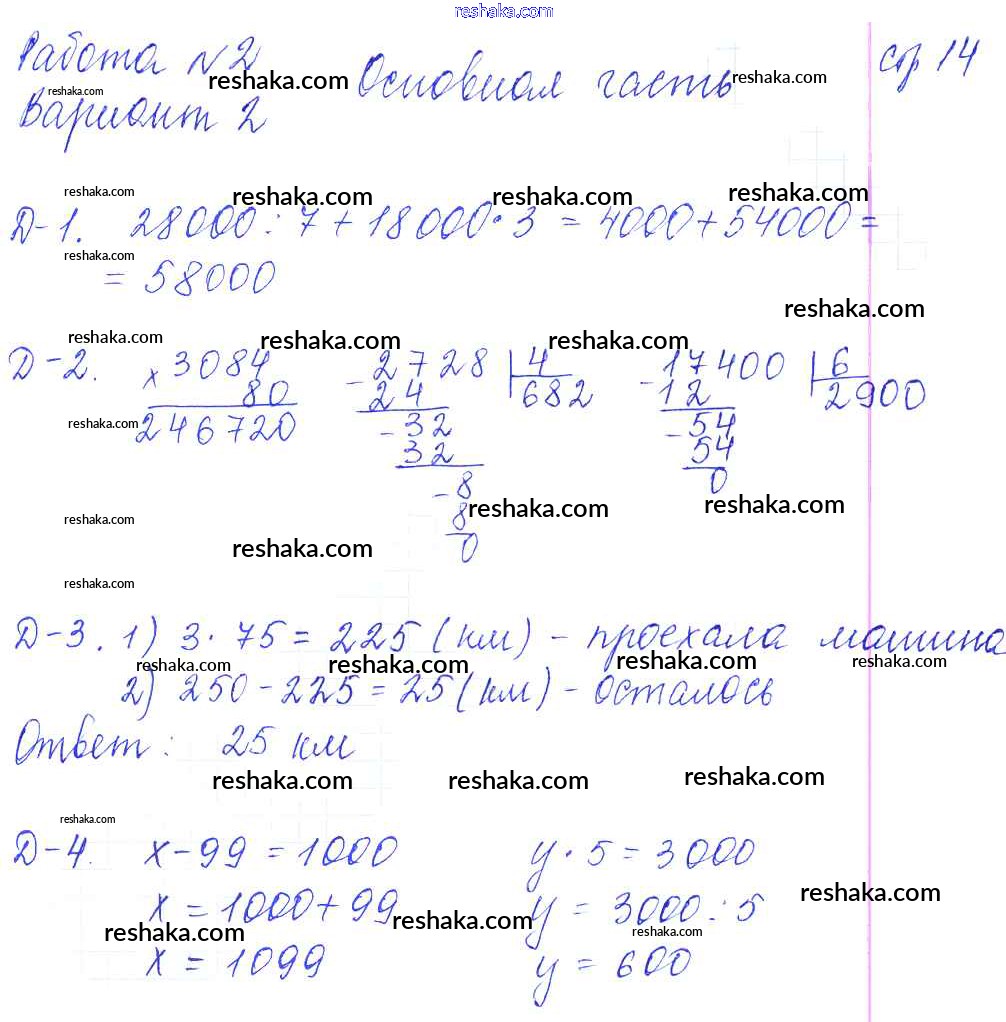 reshaka.com
Работа N 2 Основная часть стр 14
reshaka.com reshaka.com reshaka.com
Вариант 2
reshaka.com reshaka.com reshaka.com reshaka.com
Д-1. 28000 : 7 + 18000 · 3 = 4000 + 54000 =
reshaka.com
= 58000
reshaka.com
reshaka.com reshaka.com reshaka.com
Д-2. × 3084 - 2728 | 4 - 17400 | 6
80 24 682 12 2900
reshaka.com 246720 - 32 - 54
32 54
- 8 0
reshaka.com reshaka.com
reshaka.com 8
reshaka.com 0
reshaka.com
Д-3. 1) 3 · 75 = 225 (км) - проехала машина
reshaka.com reshaka.com reshaka.com
2) 250 - 225 = 25 (км) - осталось
Ответ: 25 км
reshaka.com reshaka.com reshaka.com
reshaka.com
Д-4. х - 99 = 1000 у · 5 = 3000
reshaka.com
х = 1000 + 99 у = 3000 : 5
reshaka.com reshaka.com reshaka.com
х = 1099 у = 600